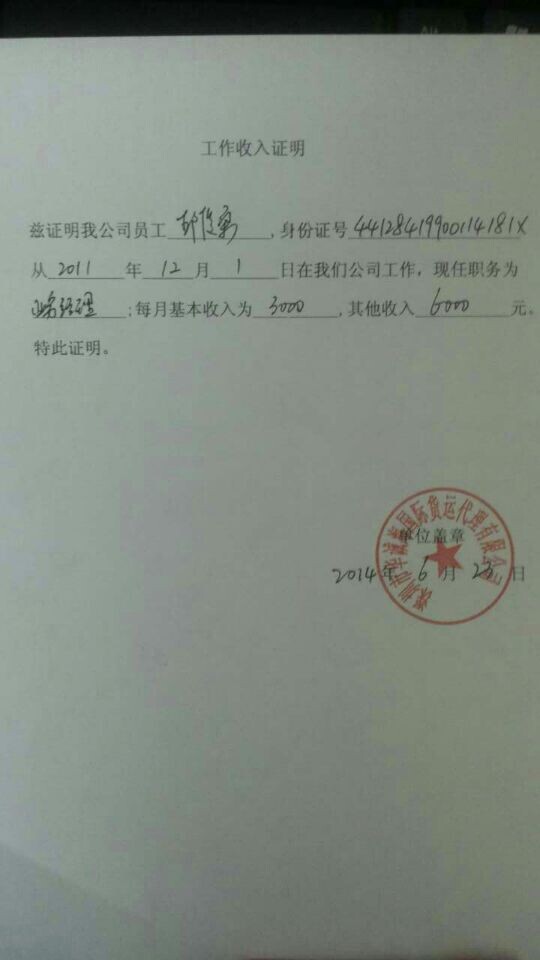 工作收入证明
兹证明我公司员工 邱俊 ,身份证号 44128419900114181X
从 2011 年 12 月 1 日在我们公司工作，现任职务为
业务经理 ;每月基本收入为 3000 ,其他收入 6000 元。
特此证明。
深圳市华诚 国际货运代理有限公司
单位盖章
2014年 6 月 23 日